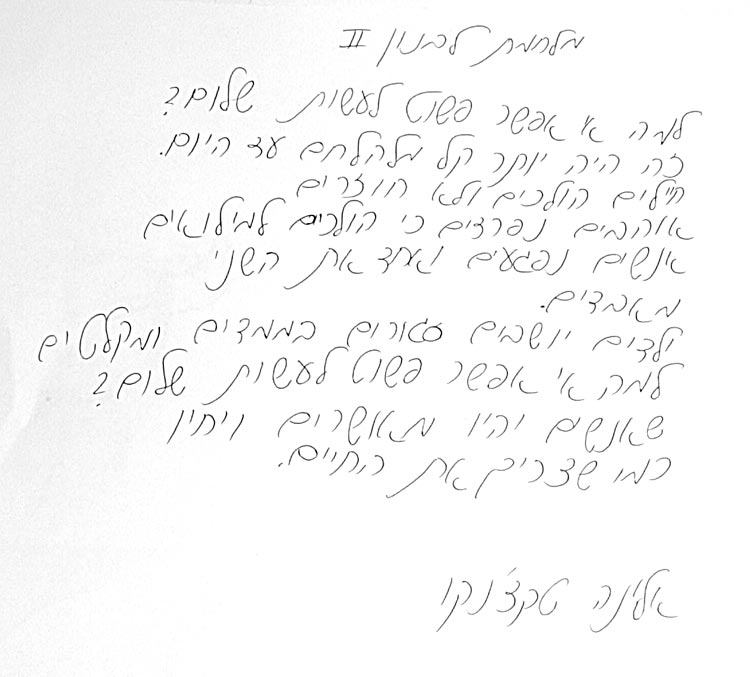 מלחמת לבנון II
למה א אפשר פשוט לעשות שלום?
זה היה יותר קל מלהלחם עד היום.
חיילים הולכים ולא חוזרים
אוהבים נפרדים כי הולכים למילואים
אנשים נפגעים ואחד את השני
מאבדים.
ילדים יושבים סגורים בממדים ומקלטים
למה אי אפשר פשוט לעשות שלום?
שאנשים יהיו מאושרים ויחיו
כמו שצריך את החיים.
אלינה טקצ'נקו